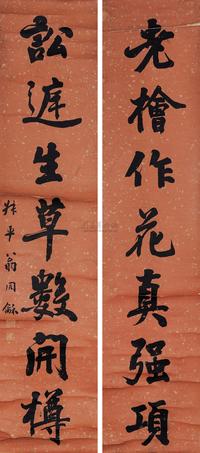 老檜作花真强項
訟庭生草數開樽
叔平翁同龢